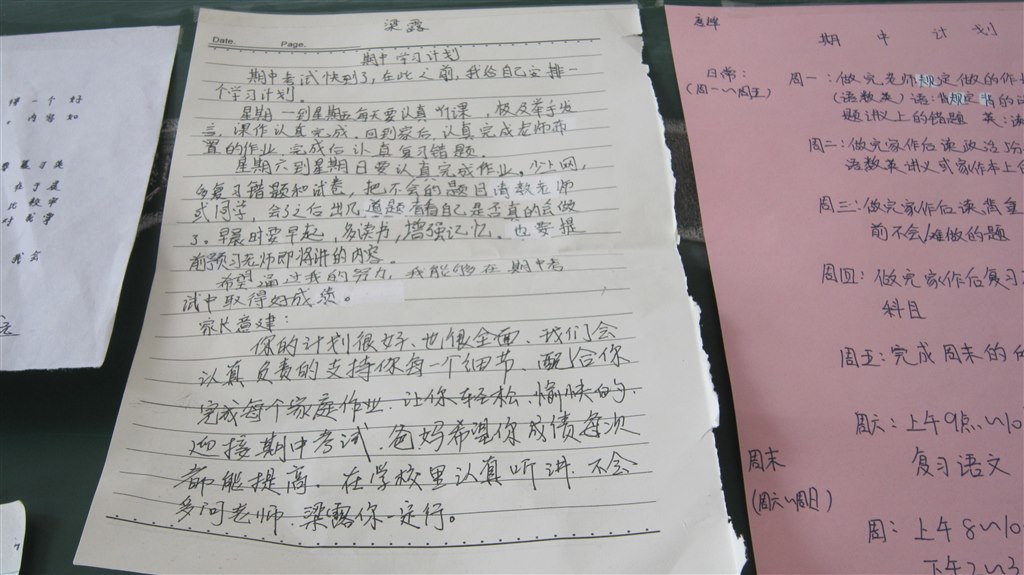 梁露
Date. Page.
期中学习计划
期中考试快到了,在此之前,我给自己安排一
个学习计划。
星期一到星期五每天要认真听课,极及举手发
言,课作认真完成,回到家后,认真完成老师布
置的作业,完成后认真复习错题。
星期六到星期日要认真完成作业。少上网,
多复习错题和试卷,把不会的题目请教老师
或同学,会了之后出几道题看看自己是否真的会做
了。早晨时要早起,多读书,增强记忆。也要提
前预习老师即将讲的内容。
希望通过我的努力,我能够在期中考
试中取得好成绩。
家长意建:
你的计划很好、也很全面、我们会
认真负责的支持你每一个细节、配合你
完成每个家庭作业、让你轻松、愉快的
迎接期中考试、爸妈希望你成绩每次
都能提高、在学校里认真听讲、不会
多问老师、梁露你一定行。
期中计划
日常:
(周一~周五)
周一:做完老师规定做的作
(语数英)语:背规定背的
题讲义上的错题 英:
周二:做完家作后读政治5分
语数英讲义或家作本上
周三:做完家作后读
前不会/难做的题
周四:做完家作后复习
科目
周五:完成周末的
周六:上午9点~10
复习语文
周末
(周六~周日)
周:上午8~10
下午2~3
得一个好
。内容如
比较
对我
我会